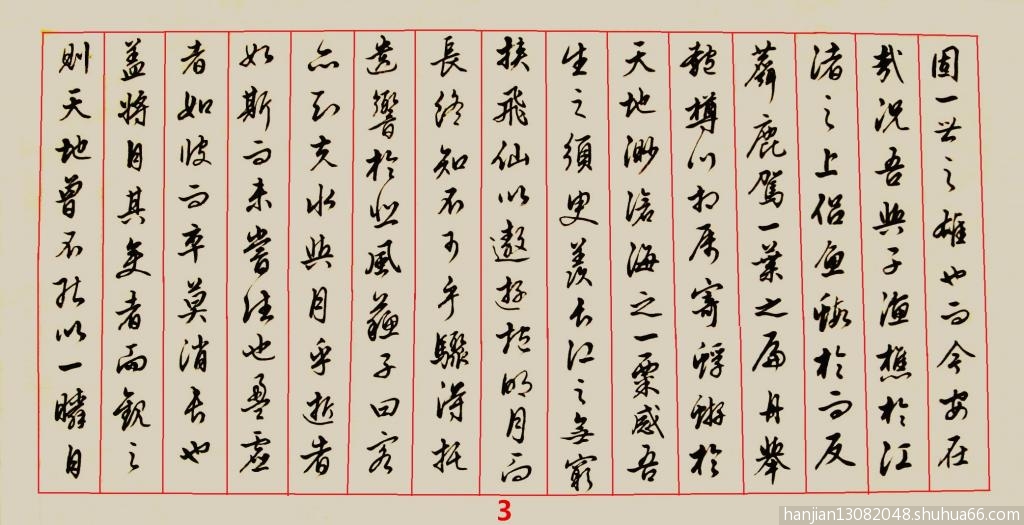 固一世之雄也而今安在
哉況吾與子漁樵於江
渚之上侶魚蝦於而友
麋鹿駕一葉之扁舟舉
匏樽以相屬寄蜉蝣於
天地渺滄海之一粟感吾
生之須臾羨長江之無窮
挾飛仙以遨遊抱明月而
長終知不可乎驟得托
遺響於悲風蘇子曰客
亦知夫水與月乎逝者
如斯而未嘗往也盈虛
者如彼而卒莫消長也
盖將自其變者而觀之
則天地曾不能以一瞬自
3
hanjian13082048.shuhua66.com